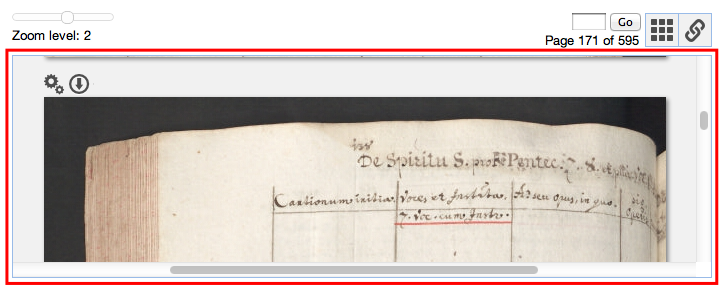 Zoom level: 2
Go
Page 171 of 595
De Spiritu S. pro Pentec.
Cantionum initia. Voces, et Instrta. Ab seu opus, in quo.
7. Voc. cum Instr.